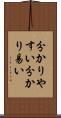 分かりや
すい分か
り易い